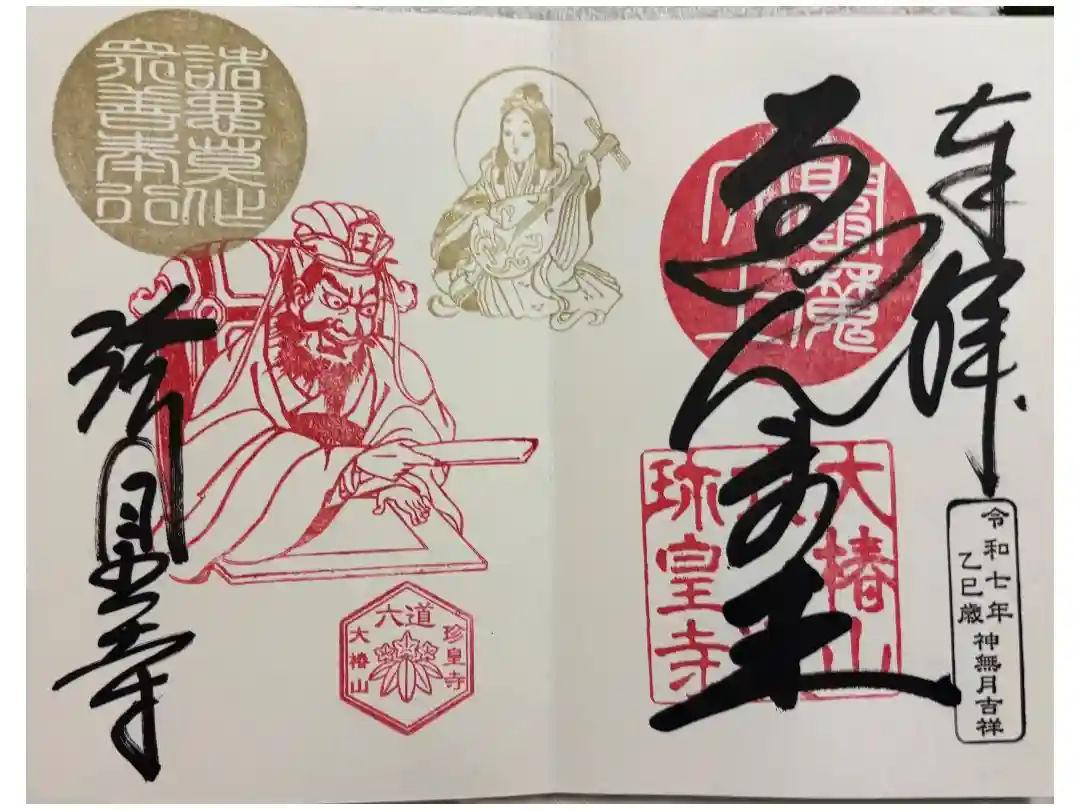 奉拝
令和七年
乙巳歳
神無月吉祥
ゑんま王
閻魔
大椿山
珍皇寺
諸悪莫作
衆善奉行
王
珍皇寺
六道
珍皇寺
大椿山